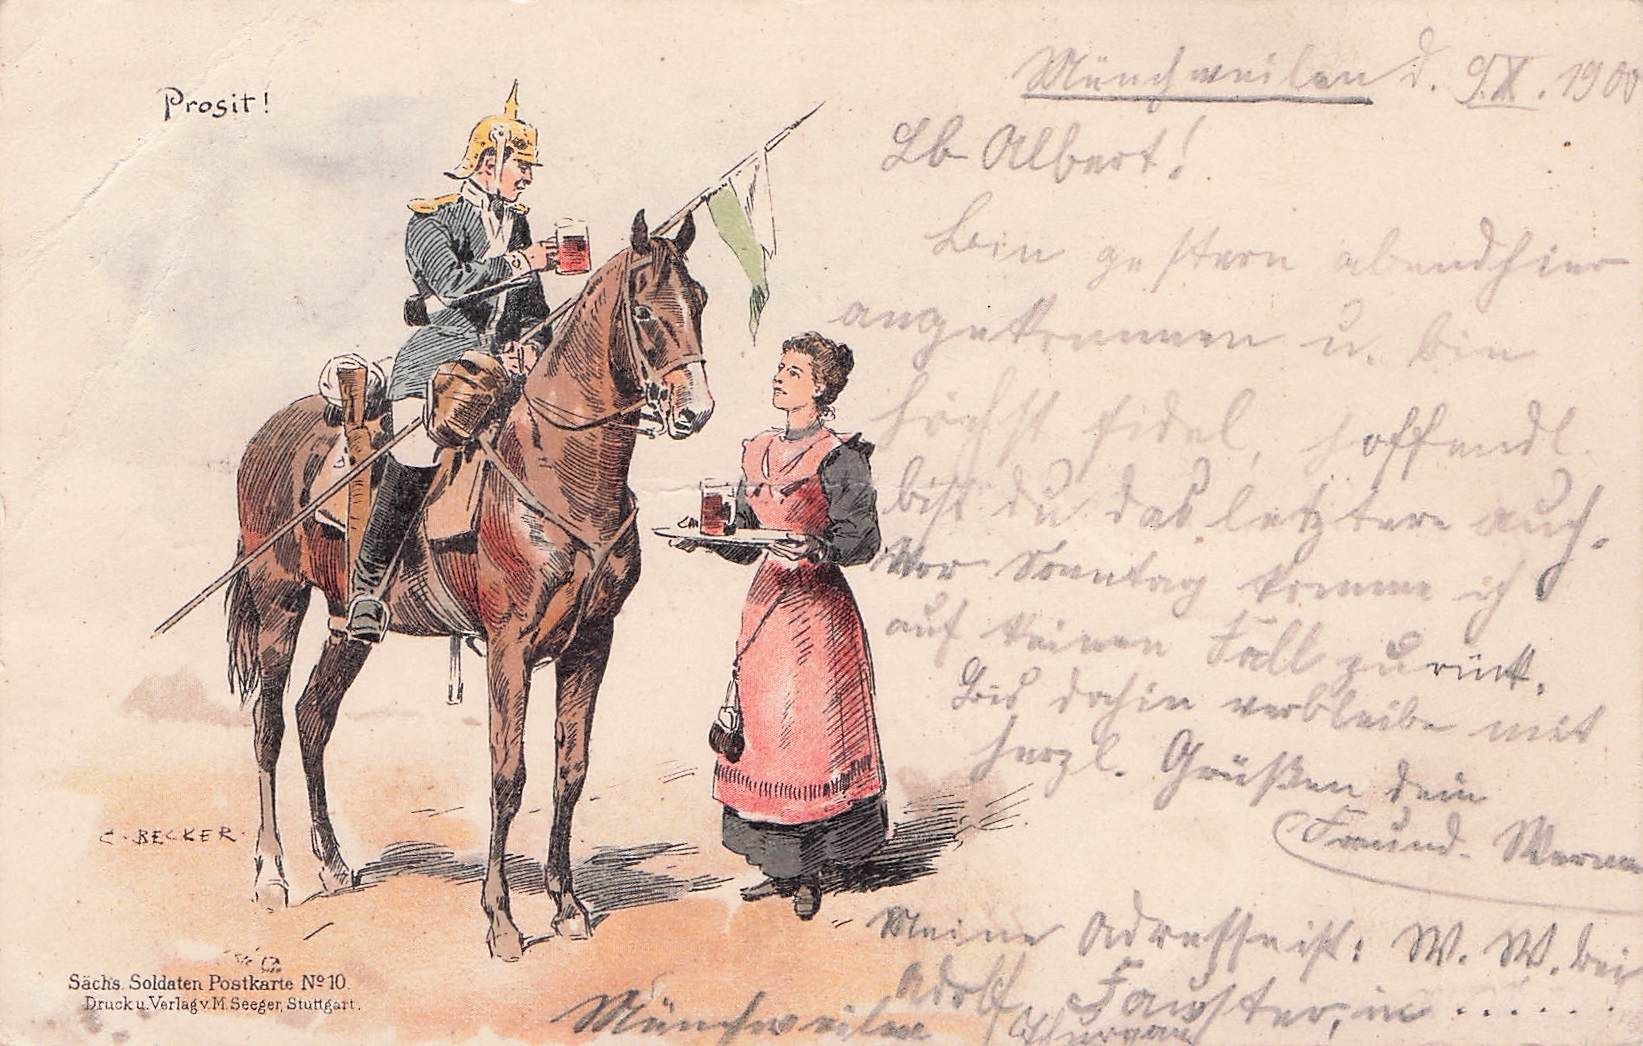 Prosit!
Münchweilen d. 9.X. 1900
Lb Albert!
bin gestern abend hier
angekommen u. bin
höchst fidel, hoffendl.
bist du das letztere auch.
Vor Sonntag komme ich
auf keinen Fall zurück.
Bis dahin verbleibe mit
herzl. Grüßen dein
Freund. Werner
Meine Adresse ist: W. W. bei
Adolf Fauster, in . . . . . .
Münchweilen Thurgau
C. BECKER
Sächs. Soldaten Postkarte No 10.
Druck u. Verlag v. M. Seeger, Stuttgart.